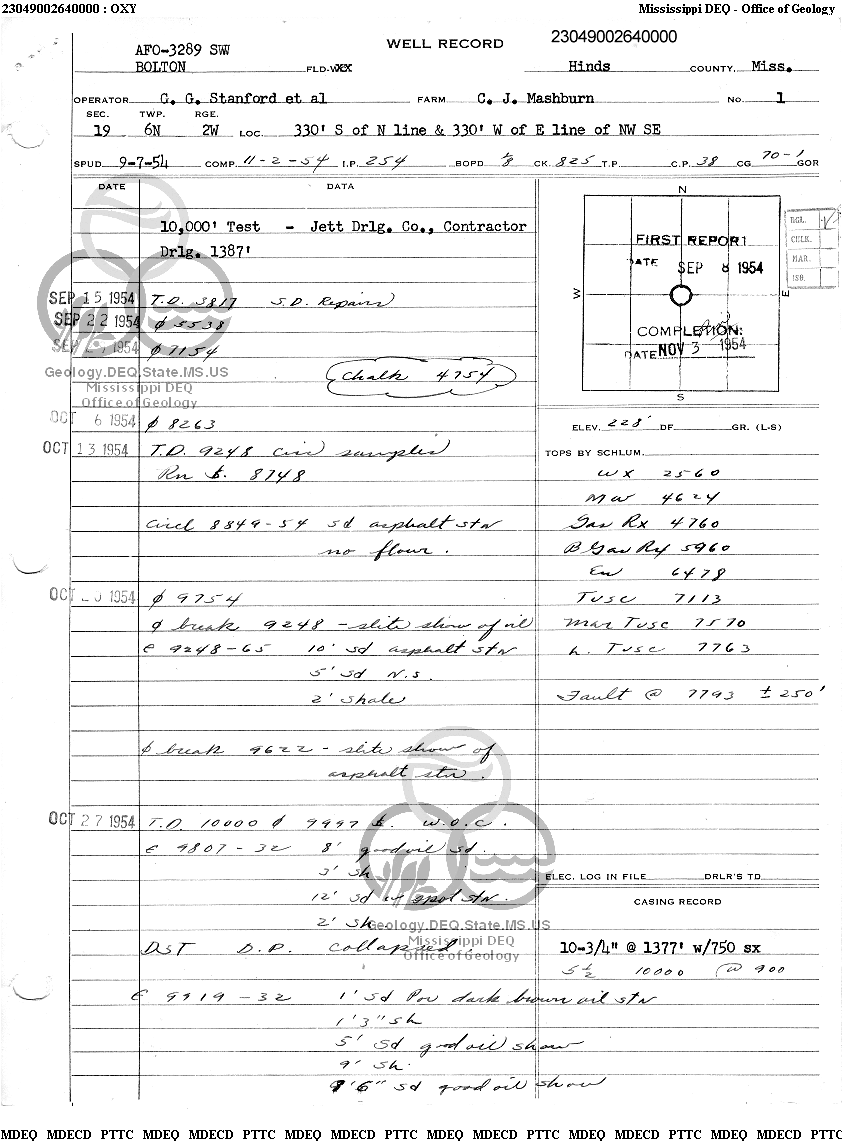 23049002640000 : OXY Mississippi DEQ - Office of Geology
AFO-3289 SW WELL RECORD 23049002640000
BOLTON FLD-WXX Hinds COUNTY, Miss.
OPERATOR G. G. Stanford et al FARM C. J. Mashburn No. 1
SEC. TWP. RGE.
19 6N 2W LOC. 330' S of N line & 330' W of E line of NW SE
SPUD. 9-7-54 COMP. 11-2-54 I.P. 254 BOPD 1/8 CK. 825 T.P. C.P. 38 CG 70-1 GOR
DATE DATA
10,000' Test - Jett Drlg. Co., Contractor
Drlg. 1387'
SEP 15 1954 T.D. 3817 S.D. Repairs
SEP 22 1954 ϕ 5538
SEP 1954 ϕ 7154
Geology.DEQ.State.MS.US
Mississippi DEQ
Office of Geology
Chalk 4754
OCT 6 1954 ϕ 8263
OCT 13 1954 T.D. 9248 Circ samples
Rn 8748
Circl 8849-54 sd asphalt stn
no flour.
OCT 20 1954 ϕ 9754
ϕ break 9248 - slite show of oil
C 9248-65 10' sd asphalt stn
5' sd N.S.
2' shale
ϕ break 9622 - slite show of
asphalt stn.
OCT 27 1954 T.D. 10000 ϕ 9997 W.O.C.
C 9807-32 8' good oil sd.
3' sh
12' sd w/ stn.
2' sh
Geology.DEQ.State.MS.US
Mississippi DEQ
Office of Geology
DST D.P. collapsed.
C 9919-32 1' sd Por dark brown oil stn
1'3" sh
5' sd good oil show
9' sh.
1'6" sd good oil show
N
W
E
S
FIRST REPORT
DATE SEP 8 1954
COMPLETION:
DATE NOV 3 1954
RGL.
CULK.
MAR.
ISB.
ELEV. 228' DF. GR. (L-S)
TOPS BY SCHLUM.
WX 2560
MW 4624
Gas Rx 4760
B Gas Rx 5960
Eu 6478
Tusc 7113
Mar Tusc 7570
L. Tusc 7763
Fault @ 7793 ± 250'
ELEC. LOG IN FILE DRLR'S TD
CASING RECORD
10-3/4" @ 1377' w/750 sx
5 1/2 10000 @ 900
MDEQ MDECD PTTC MDEQ MDECD PTTC MDEQ MDECD PTTC MDEQ MDECD PTTC MDEQ MDECD PTTC MDEQ MDECD PTTC